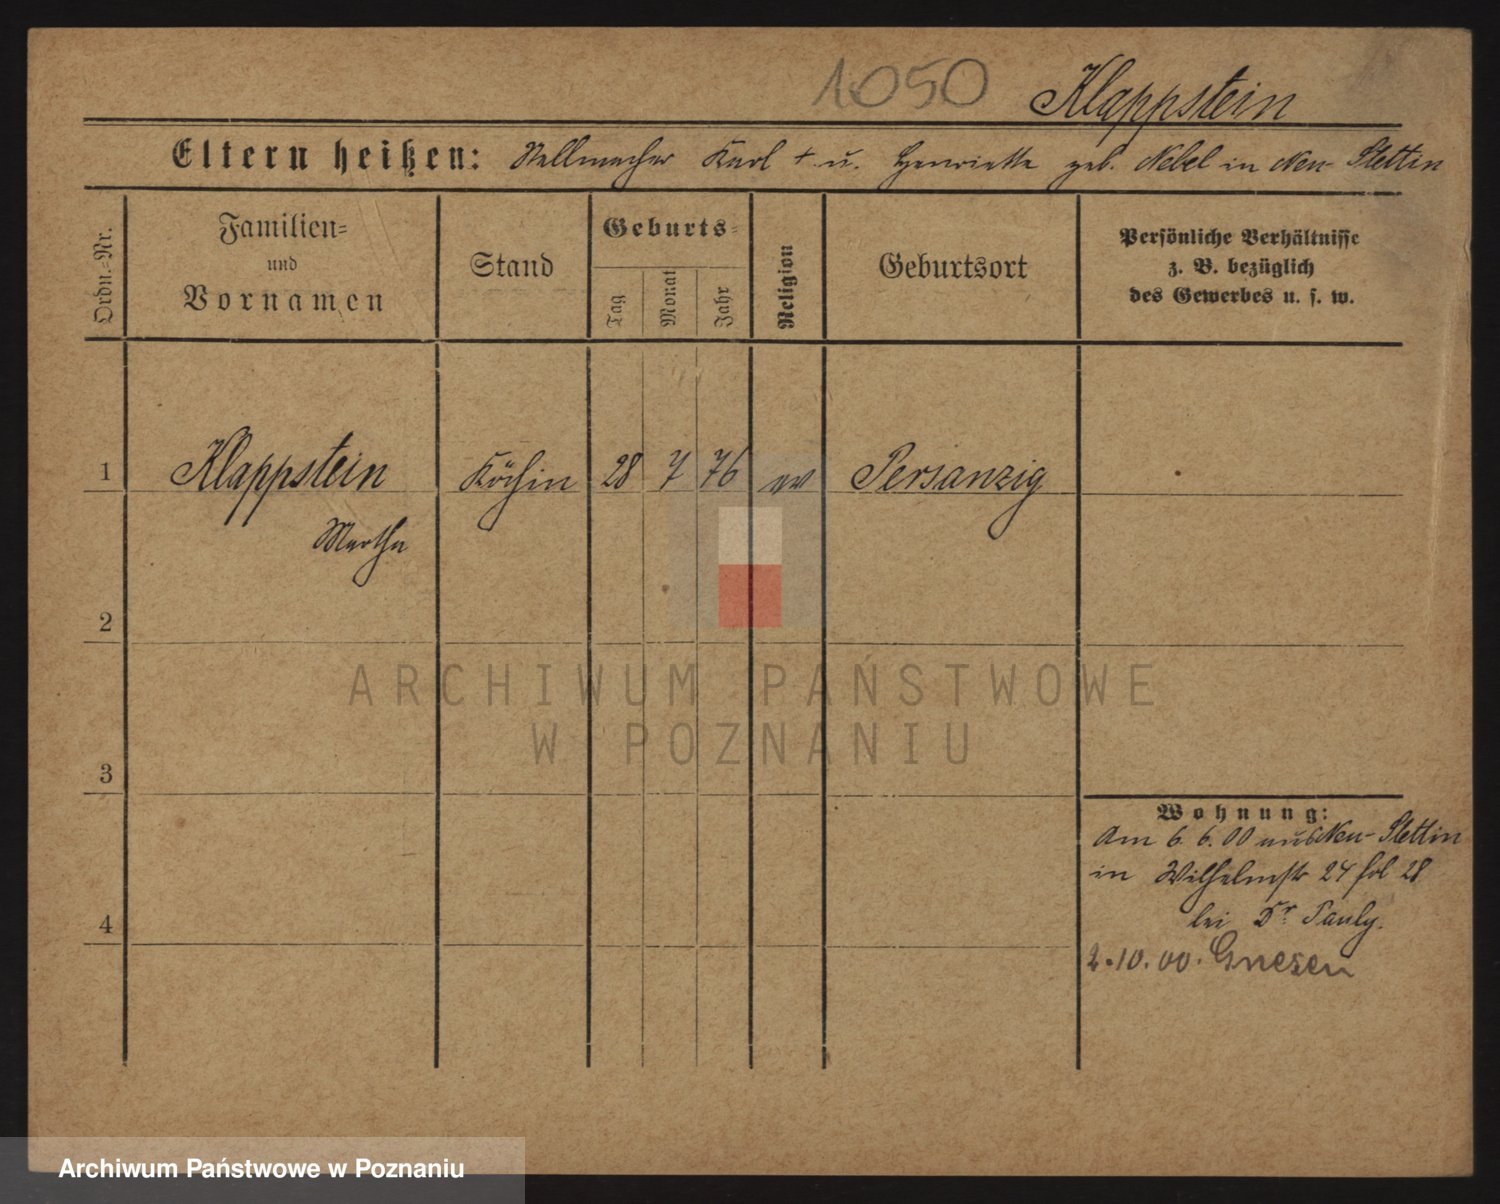 1050 Klappstein
Eltern heißen: Stellmacher Karl † u. Henriette geb. Nebel in Neu-Stettin
Ordn.-Nr.
Familien-
und
Vornamen
Stand
Geburts-
Tag
Monat
Jahr
Religion
Geburtsort
Persönliche Verhältnisse
z. B. bezüglich
des Gewerbes u. s. w.
1 Klappstein Köchin 28 7 76 ev Persanzig
Martha
2
ARCHIWUM PAŃSTWOWE
W POZNANIU
3
Wohnung:
Am 6. 6. 00 aus Neu-Stettin
in Wilhelmstr 24 fol 28
bei Dr. Pauly.
4
2.10.00. Gnesen
Archiwum Państwowe w Poznaniu